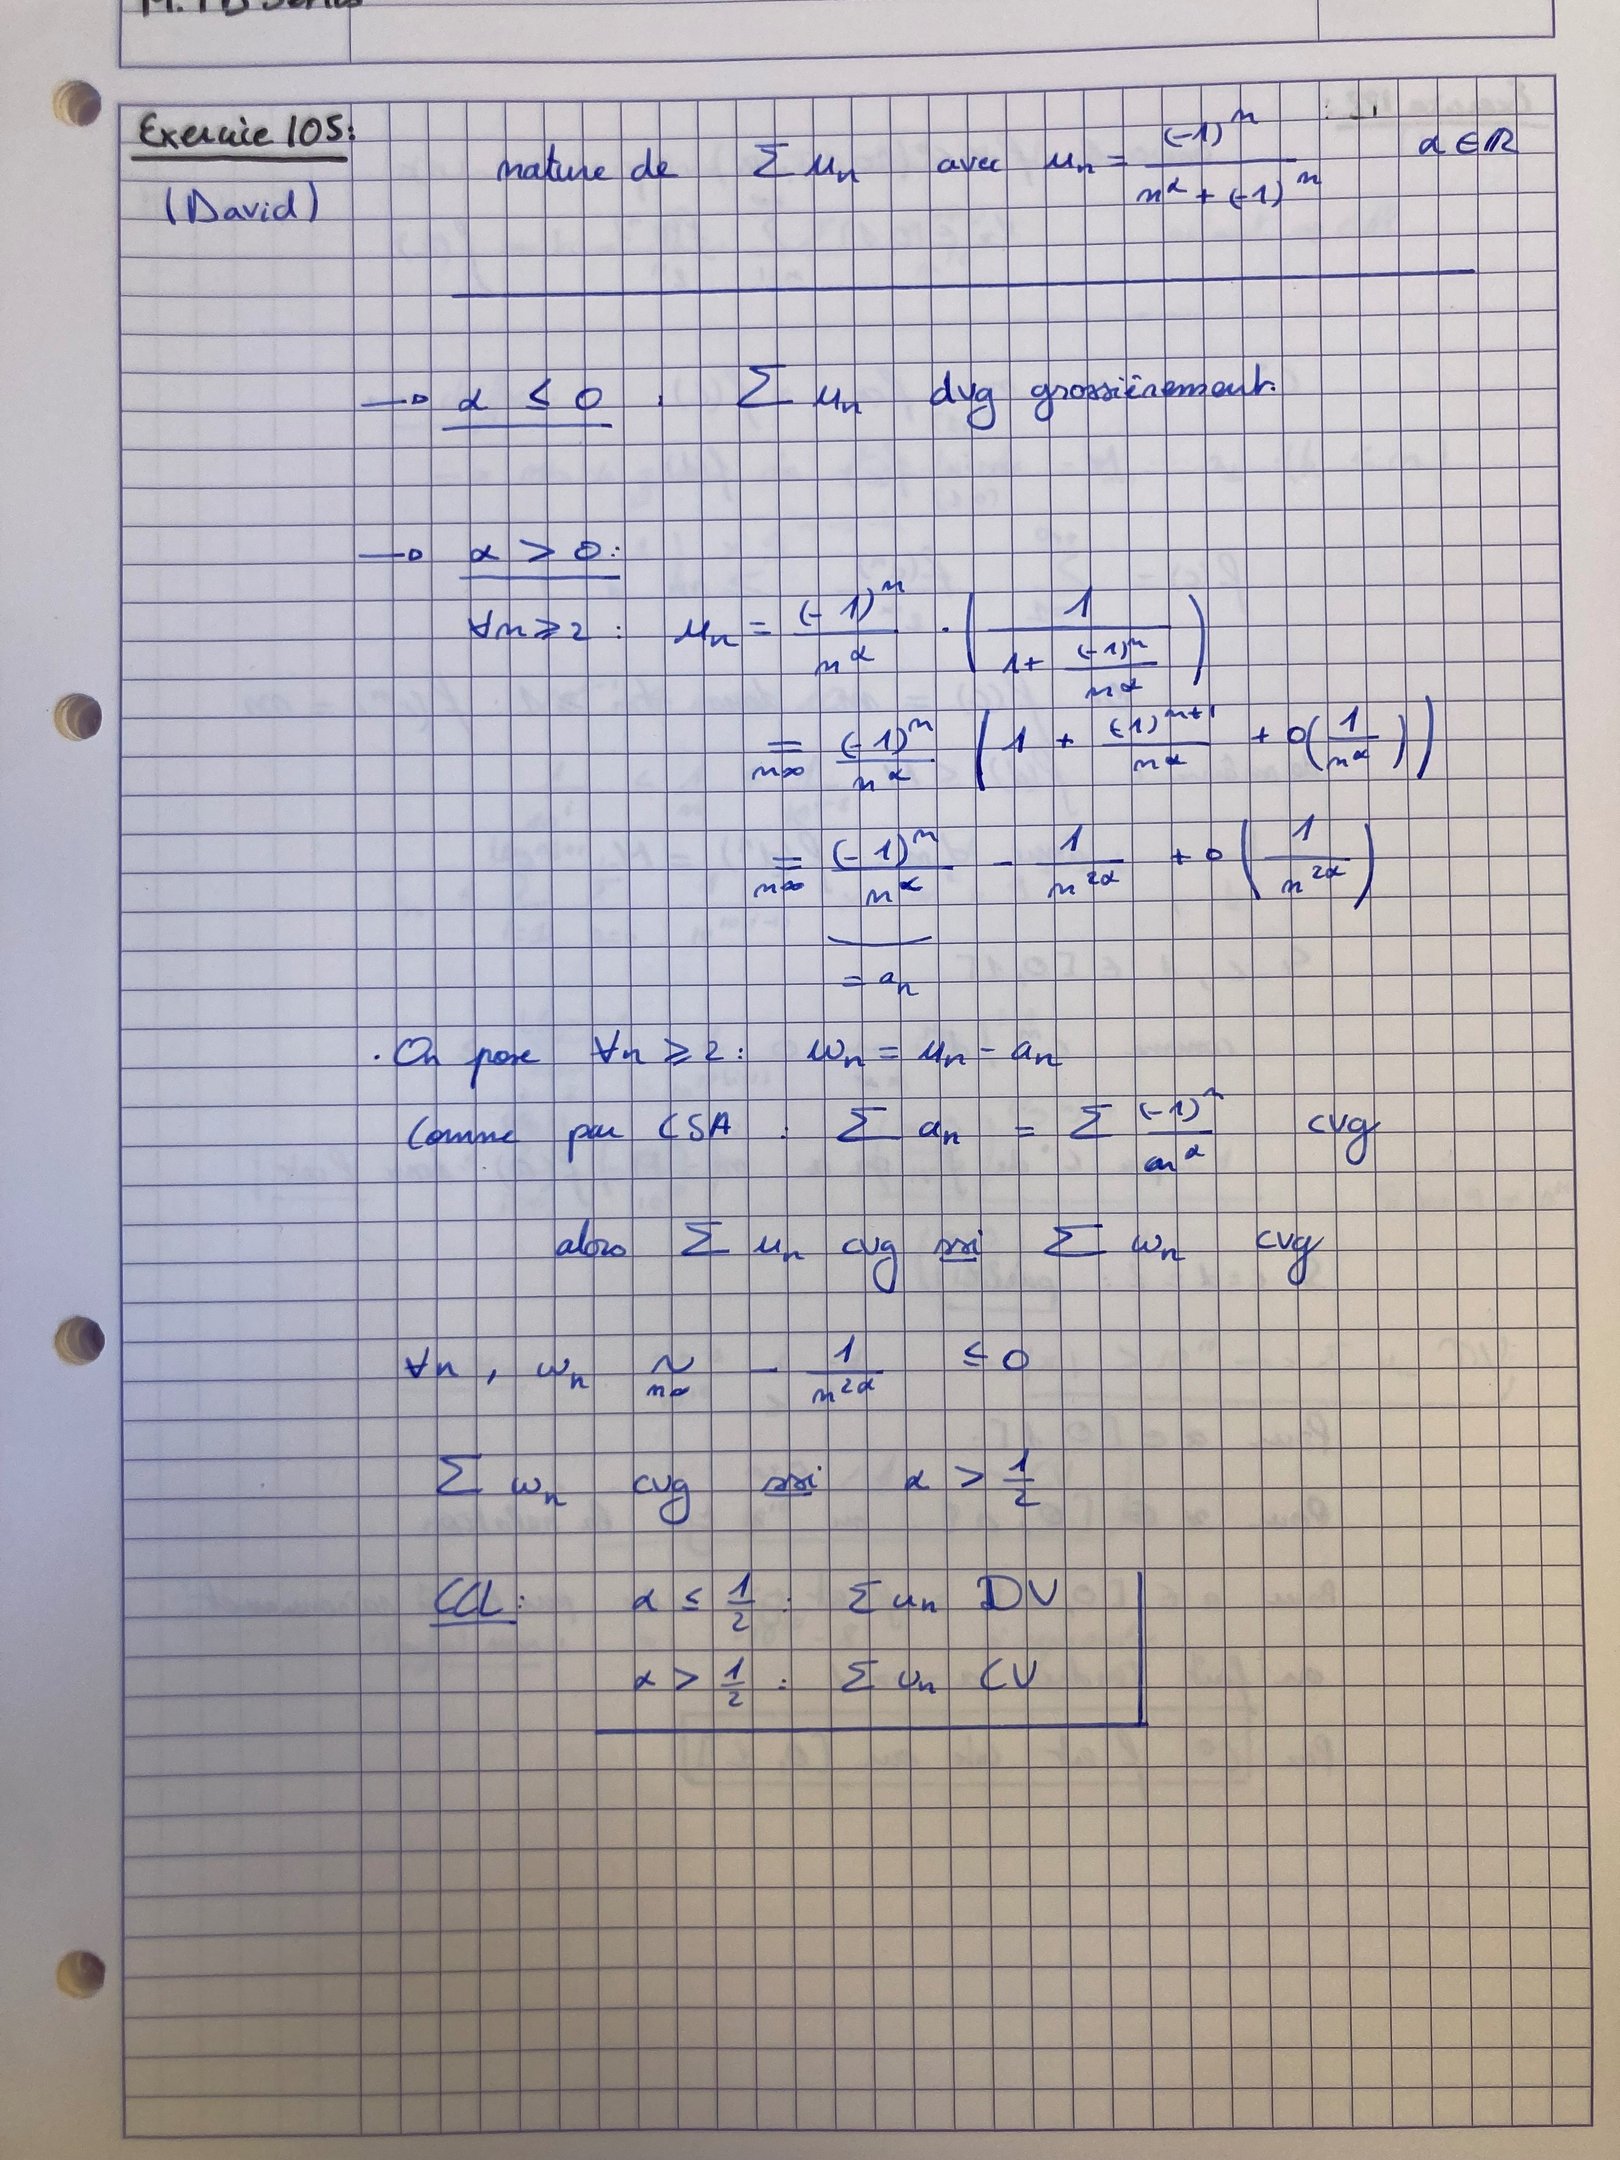 Exercice 105:
(David)
nature de Σ u_n avec u_n = (-1)^n / (n^α + (-1)^n) α ∈ ℝ
→ α ≤ 0 : Σ u_n dvg grossièrement.
→ α > 0 :
∀n ≥ 2 : u_n = (-1)^n / n^α · ( 1 / (1 + (-1)^n / n^α) )
=_{n∞} (-1)^n / n^α ( 1 + (-1)^{n+1} / n^α + o(1/n^α) )
=_{n∞} (-1)^n / n^α - 1 / n^{2α} + o( 1 / n^{2α} )
= a_n
. On pose ∀n ≥ 2 : w_n = u_n - a_n
Comme par CSA : Σ a_n = Σ (-1)^n / n^α cvg
alors Σ u_n cvg ssi Σ w_n cvg
∀n , w_n ~_{n∞} - 1 / n^{2α} ≤ 0
Σ w_n cvg ssi α > 1/2
CCL : α ≤ 1/2 : Σ u_n DV
α > 1/2 : Σ u_n CV